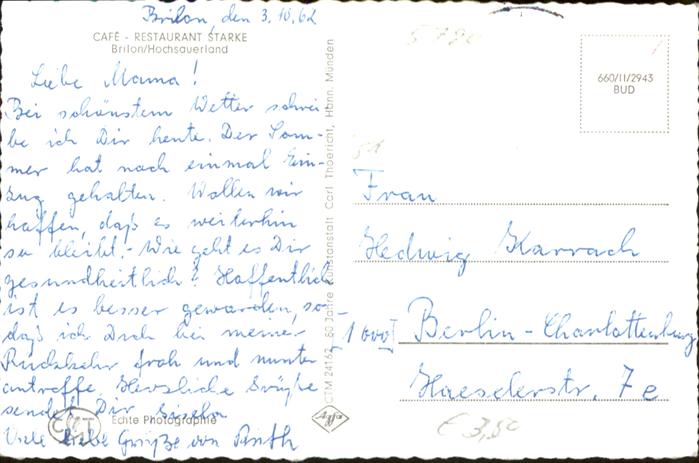 Brilon, den 3.10.62
CAFÉ - RESTAURANT STARKE
Brilon/Hochsauerland
Liebe Mama!
Bei schönstem Wetter schrei-
be ich Dir heute. Der Som-
mer hat noch einmal Ein-
zug gehalten. Wollen wir
hoffen, daß es weiterhin
so bleibt.- Wie geht es Dir
gesundheitlich? Hoffentlich
ist es besser geworden, so
daß ich Dich bei meiner
Rückkehr froh und munter
antreffe. Herzliche Grüße
sendet Dir Gisela
Echte Photographie
Viele liebe Grüße von Ruth
CTM 24162 60 Jahre Kunstanstalt Carl Thoericht, Hann. Münden
Agfa
660/II/2943
BUD
Frau
Hedwig Karrach
[1000] Berlin-Charlottenburg
Haeselerstr. 7e
€ 3,50